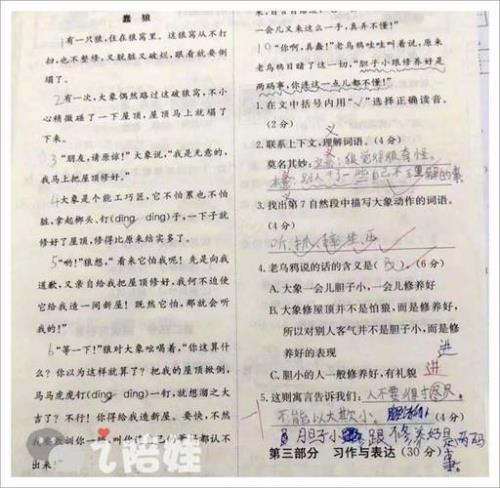 蠢狼
1 有一只狼，住在狼窝里。这狼窝从不打
扫，也不整修，又肮脏又破烂，眼看就要倒
塌了。
2 有一次，大象偶然路过这破狼窝，不小
心稍微碰了一下屋顶，屋顶马上就塌了
下来。
3 “朋友，请原谅！”大象说，“我是无意的，
我马上把屋顶修好。”
4 大象是个能工巧匠，它不怕累也不怕
脏，拿起榔头、钉(dīng dìng)子，一下子就
修好了屋顶，修得比原来结实多了。
5 “哟！”狼想，“看来它怕我呢！先是向我
道歉，又亲自给我把屋顶修好，我何不迫使
它给我造一间新屋！既然它怕，那就会听
我的！”
6 “等一下！”狼对大象吆喝着，“你这算什
么？你以为这样就算了？把我的屋顶掀倒，
马马虎虎钉(dīng dìng)一钉，就想溜之大
吉了？不行！你得给我造新屋。要快，不然
出来！
飞陪娃
会儿又来这么一手，真弄不懂！”
10 “你啊，真蠢！”老乌鸦哇哇叫着说，原来
老乌鸦目睹了这一切，“胆子小跟修养好是
两码事，你连这一点儿都不懂！”
1.在文中括号内用“√”选择正确读音。
(2分)
2.联系上下文，理解词语。(4分)
莫名其妙：
3.找出第7自然段中描写大象动作的词语。
(4分)
4.老乌鸦说的话的含义是( B )。(6分)
A.大象一会儿胆子小，一会儿修养好
B.大象修屋顶并不是怕狼，而是修养好，
所以对别人客气并不是胆子小，而是修
养好的表现
C.胆小的人一般修养好，有礼貌
5.这则寓言告诉我们：人不要得寸进尺，
不能以大欺小。
(4分)
胆子小 跟 修养好是两码
事。
第三部分 习作与表达(30分)